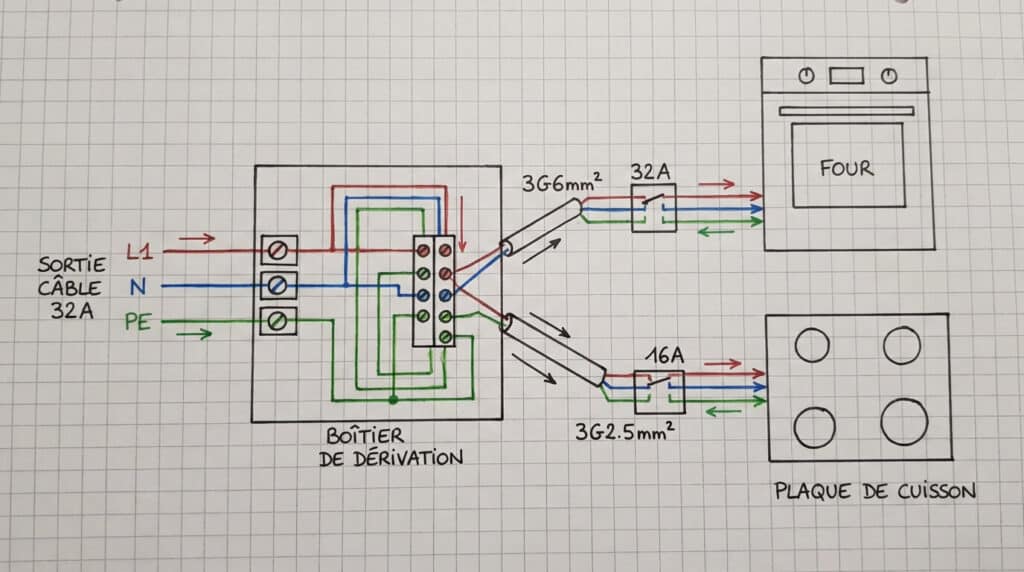 SORTIE
CÂBLE
32A
L1
N
PE
BOÎTIER
DE DÉRIVATION
3G6mm²
32A
FOUR
16A
3G2.5mm²
PLAQUE DE CUISSON